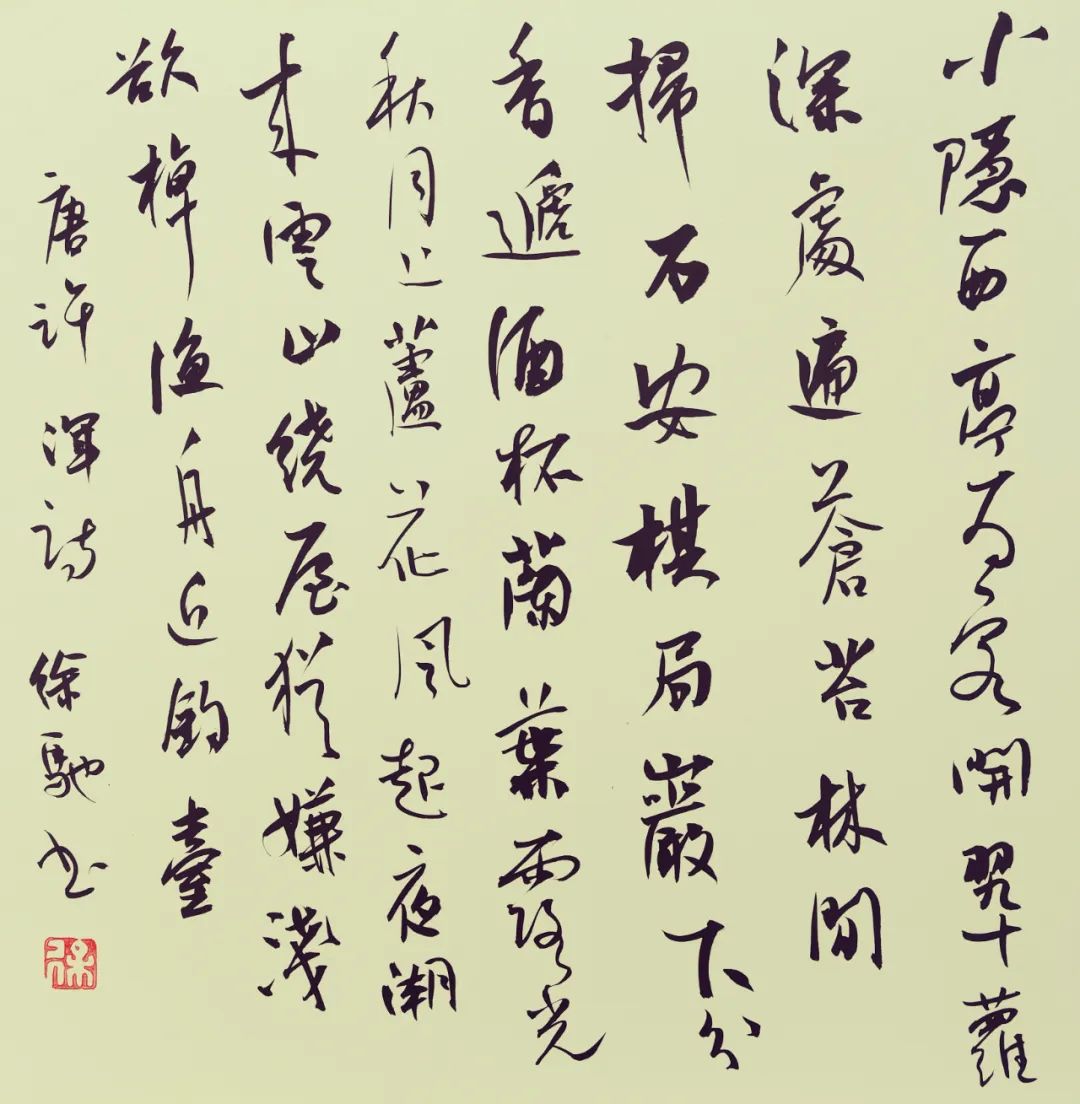 小隱西亭為客開翠蘿
深處遍蒼苔林間
掃石安棋局巖下分
香遞酒杯蘭葉露光
秋月上蘆花風起夜潮
來雲山繞屋猶嫌淺
欲棹漁舟近釣臺
唐許渾詩 徐馳書
徐